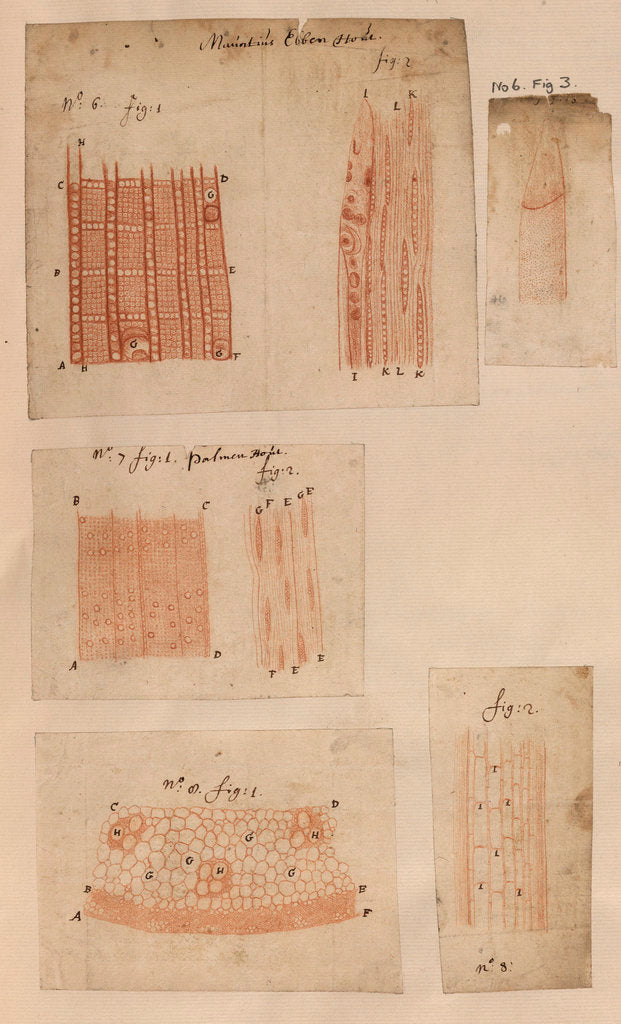 Mauritius Ebben Hout.
fig: 2
No: 6. fig: 1
H
C D
G
B E
G G
A H F
I L K
I K L K
No6. Fig 3.
No 7 fig: 1. palmen Hout.
fig: 2.
B C
G F E G E
A D
F E E
no. 8. fig: 1.
C D
H G H
G H
G G
B E
A F
fig: 2.
I
I I
I
I I
no: 8: